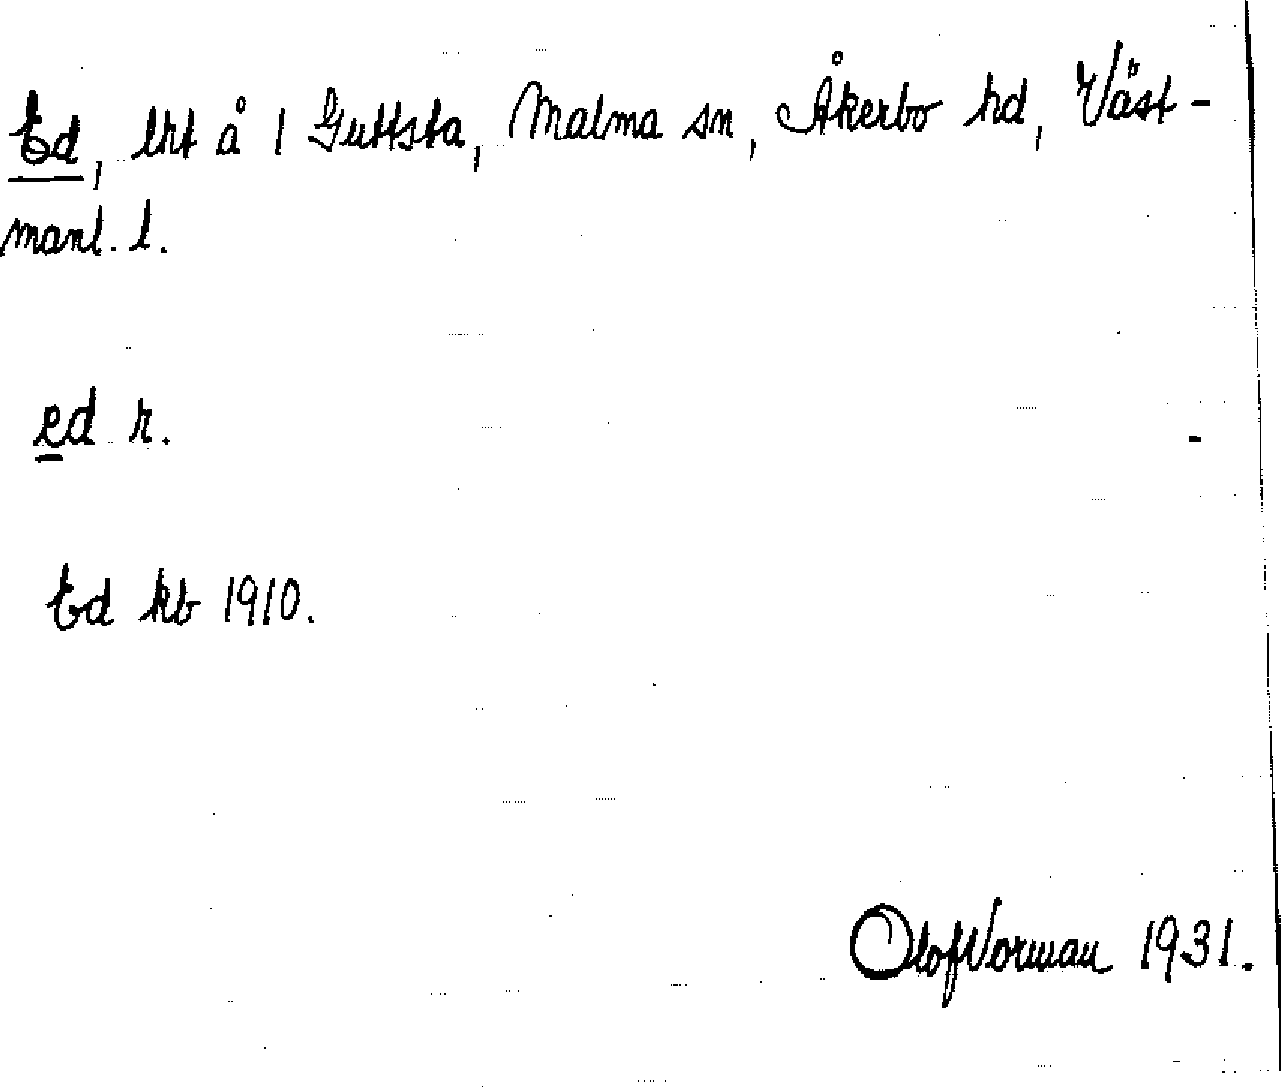 Ed, lht å 1 Guttsta, Malma sn, Åkerbo hd, Väst-
manl. l.
ed r.
Ed kb 1910.
Olof Norman 1931.